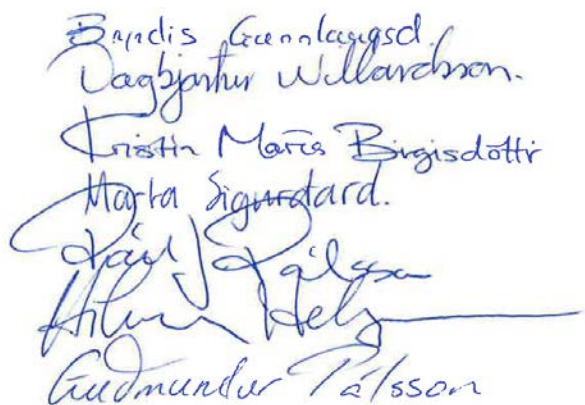 Bryndís Gunnlaugsd.
Dagbjartur Willardsson.
Kristín María Birgisdóttir
Marta Sigurðard.
Páll J Pálsson
Hilmar Helg
Guðmundur Pálsson